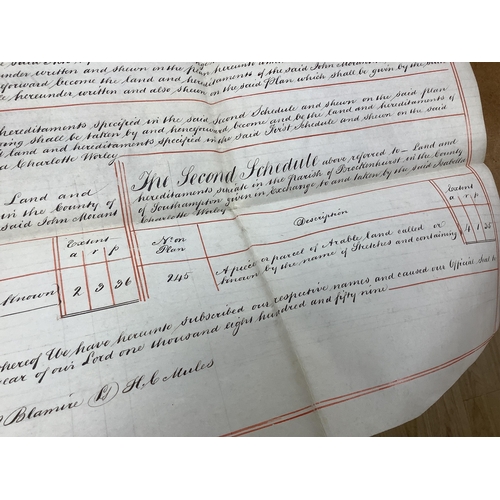 under written and shewn on the plan hereunto
forward become the land and hereditaments of the said John Morant
hereunder written and also shewn on the said Plan which shall be given by the
hereditaments specified in the said Second Schedule and shewn on the said plan
shall be taken by and henceforward become and be the land and hereditaments of
land and hereditaments specified in the said First Schedule and shewn on the said
a Charlotte Worley
Land and
in the County of
said John Morant
The Second Schedule above referred to — Land and
hereditaments situate in the parish of Brockenhurst in the County
of Southampton given in Exchange to and taken by the said Isabella
Charlotte Worley
Extent
a r p
known 2 3 26
No. on Plan
Description
Extent
a r p
245
A piece or parcel of Arable land called or
known by the name of Sketches and containing
4 1 35
hereof We have hereunto subscribed our respective names and caused our Official Seal to
year of our Lord one thousand eight hundred and fifty nine
Blamire H. C. Mules